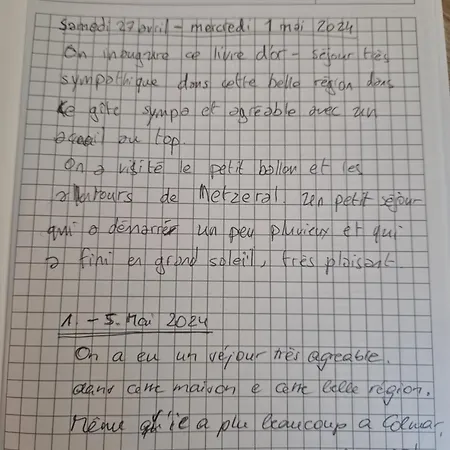 Samedi 27 avril - mercredi 1 mai 2024
On inaugure ce livre d'or - séjour très
sympathique dans cette belle région dans
ce gîte sympa et agréable avec un
acceuil au top.
On a visité le petit ballon et les
alentours de Metzeral. Un petit séjour
qui a démarré un peu pluvieux et qui
a fini en grand soleil, très plaisant.
1. - 5. Mai 2024
On a eu un séjour très agreable,
dans cette maison e cette belle région.
Même qu'il a plu beaucoup a Colmar,